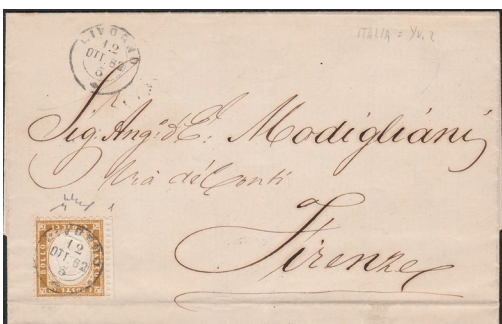 LIVORNO
12
OTT 62
8
ITALIA = Yv. 2
Sig. Ang. d. E. Modigliani
Via de' Conti
Firenze
LIVORNO
12
OTT 62
8